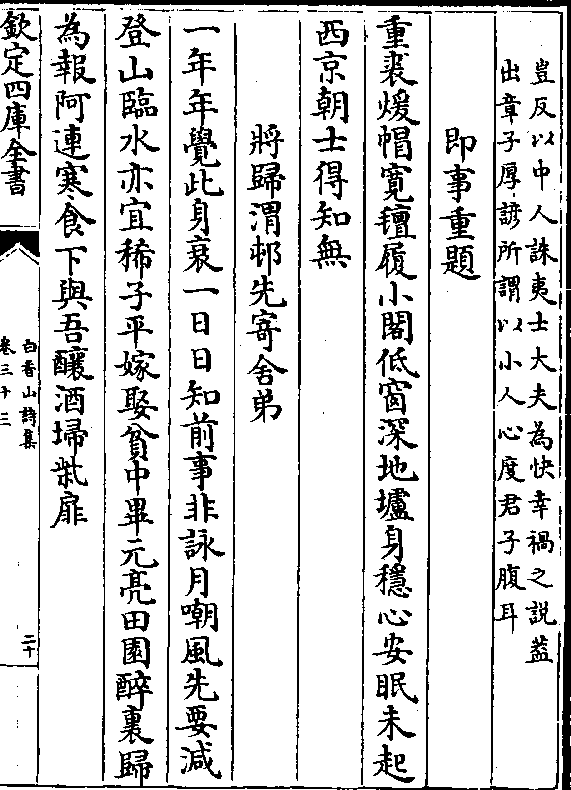 豈反以中人誅夷士大夫為快幸禍之説葢
出章子厚諺所謂以小人心度君子腹耳
即事重題
重裘煖帽寛氊履小閣低窗深地壚身穩心安眠未起
西京朝士得知無
將歸渭邨先寄舍弟
一年年覺此身衰一日日知前事非詠月嘲風先要減
登山臨水亦宜稀子平嫁娶貧中畢元亮田園醉裏歸
為報阿連寒食下與吾釀酒埽柴扉
欽定四庫全書
白香山詩集
卷三十三
二十